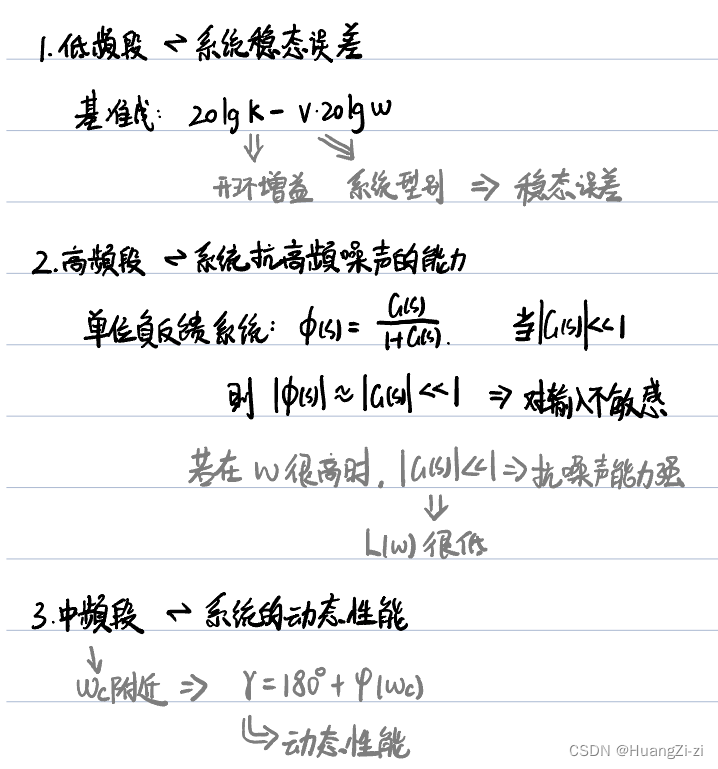 1.低频段 ⇌ 系统稳态误差
基准线: 20lgK - v·20lgw
开环增益 系统型别 => 稳态误差
2.高频段 ⇌ 系统抗高频噪声的能力
单位负反馈系统: φ(s) = G(s)/1+G(s). 当|G(s)|<<1
则 |φ(s)| ≈ |G(s)| <<1 => 对输入不敏感
若在w很高时, |G(s)|<<1 => 抗噪声能力强
L(w)很低
3.中频段 ⇌ 系统的动态性能
wc附近 => γ=180°+φ(wc)
动态性能
CSDN @HuangZi-zi